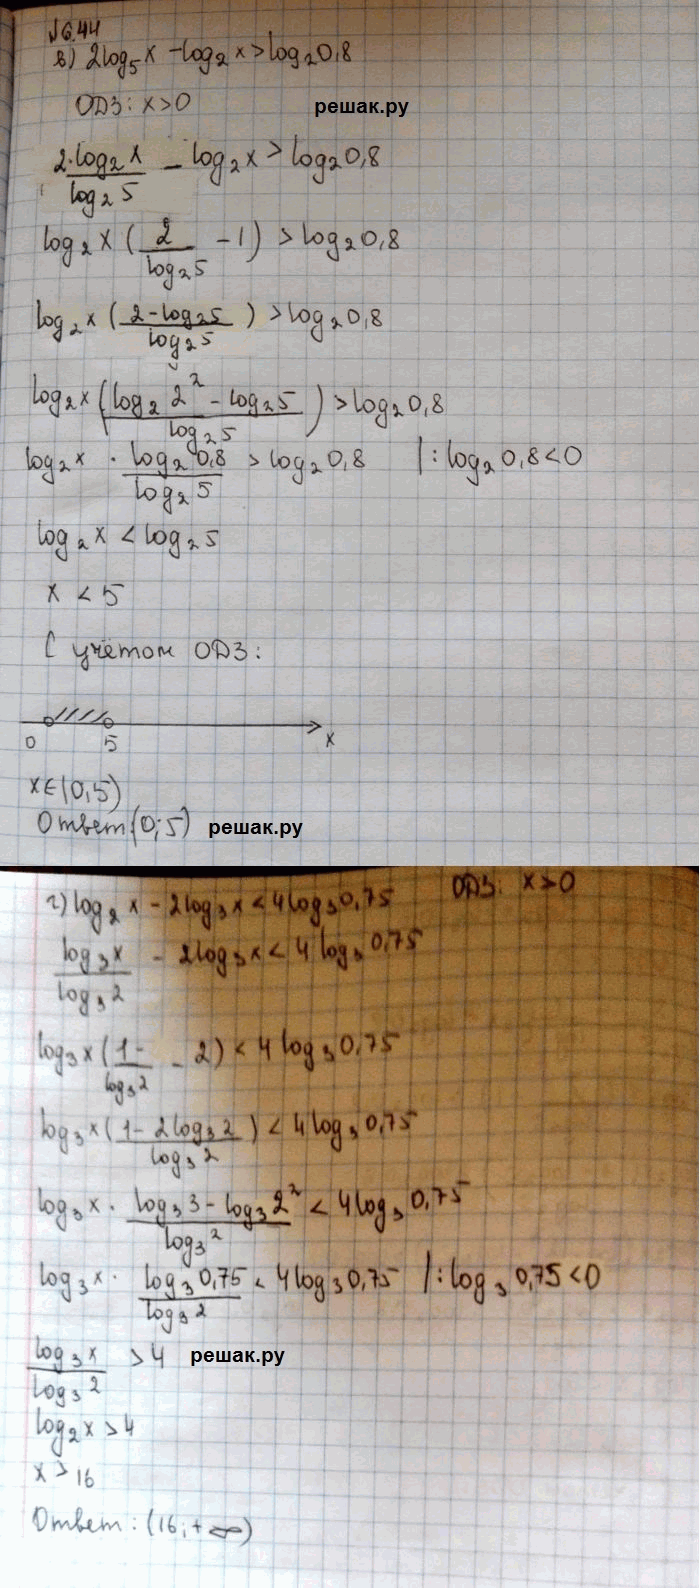 №6.44
в) 2log₅x - log₂x > log₂0,8
ОДЗ: x>0
решак.ру
2·log₂x/log₂5 - log₂x > log₂0,8
log₂x (2/log₂5 - 1) > log₂0,8
log₂x ((2-log₂5)/log₂5) > log₂0,8
log₂x ((log₂2² - log₂5)/log₂5) > log₂0,8
log₂x · log₂0,8/log₂5 > log₂0,8 |: log₂0,8<0
log₂x < log₂5
x < 5
С учётом ОДЗ:
0 5 x
x∈(0,5)
Ответ(0;5) решак.ру
г) log₂x - 2log₃x < 4log₃0,75 ОДЗ: x>0
log₃x/log₃2 - 2log₃x < 4log₃0,75
log₃x (1-/log₃2 - 2) < 4log₃0,75
log₃x ((1-2log₃2)/log₃2) < 4log₃0,75
log₃x · (log₃3 - log₃2²)/log₃2 < 4log₃0,75
log₃x · log₃0,75/log₃2 < 4log₃0,75 |: log₃0,75<0
log₃x/log₃2 > 4 решак.ру
log₂x > 4
x > 16
Ответ: (16;+∞)